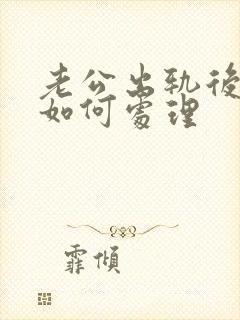 老公出轨後
如何處理
霏傾